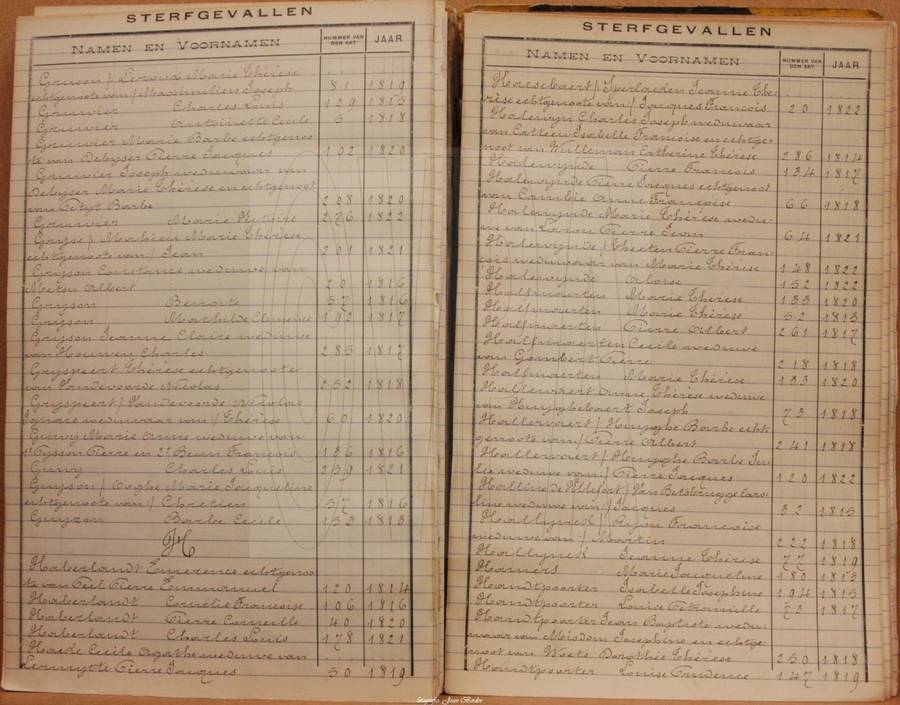 STERFGEVALLEN
NAMEN EN VOORNAMEN NUMMER VAN DEN AKT JAAR
Gruson / Leroux Marie Thérèse
echtgenoote van / Maximilien Joseph 81 1819
Gruwier Charles Louis 129 1813
Gruwier Antoinette Cecile 3 1818
Gruwier Marie Barbe echtgenoo-
te van Debuyser Pierre Jacques 102 1820
Gruwier Joseph weduwaar van
Debuyser Marie Thérèse en echtgenoot
van Barbe 208 1820
Gruwier Marie Victoire 276 1822
Gryse / Mahieu Marie Thérèse
echtgenoote van / Jean 201 1821
Gryson Constance weduwe van
Albert 20 1816
Gryson 57 1816
Gryson Mathilde Clemence 192 1817
Gryson Jeanne Claire weduwe
van Houwen Charles 285 1817
Gryspeert Thérèse echtgenoote
van Vandevoorde Nicolas 252 1818
Gryspeert / Vandevoorde Nicolas
Ignace weduwaar van / Thérèse 60 1820
Guwy Marie Anne weduwe van
1° Pierre en 2° Beun François 136 1816
Guwy Charles Louis 259 1821
Guyson / Marie Jacqueline
echtgenoote van / Chretien 57 1816
Barbe Cecile 153 1813
H
Haberlandt Emerence echtgenoo-
te van Pierre Emmanuel 120 1814
Haberlandt Cornelie Françoise 106 1816
Haberlandt Pierre Corneille 40 1820
Haberlandt Charles Louis 178 1821
Cecile Agathe weduwe van
Pierre Jacques 50 1819
STERFGEVALLEN
NAMEN EN VOORNAMEN NUMMER VAN DEN AKT JAAR
Haesebaert / Jeanne Thé-
rèse echtgenoote van / Jacques François 20 1822
Halewyn Charles Joseph weduwaar
van Catteeu Isabelle Françoise en echtge-
noot van Wulleman Catherine Thérèse 286 1814
Halewynde Pierre François 134 1817
Halewynde Pierre Jacques echtgenoot
van Cambie Anne Françoise 66 1818
Halewynde Marie Thérèse wedu-
we van Pierre Jean 64 1821
Halewynde / Theeten Pierre Fran-
cois weduwaar van Marie Thérèse 148 1822
Halewynde 152 1822
Halfmaerten Marie Thérèse 133 1820
Halfmaerten Marie Thérèse 52 1813
Halfmaerten Pierre Albert 261 1817
Halfmaerten Cecile weduwe
van Gombert Pierre 218 1818
Halfmaerten Marie Thérèse 133 1820
Hallevaert Anne Thérèse weduwe
van Huyghebaert Joseph 73 1818
Hallevaert / Huyghe Barbe echt-
genoote van / Pierre Albert 241 1818
Hallevaert / Huyghe Barbe Ju-
lie weduwe van / Pierre Jacques 120 1822
Halline de Villefort / Van Betsbrugge Caro-
line weduwe van / Jacques 32 1815
Hallynck / Françoise
weduwe van / Martin 222 1818
Hallynck Jeanne Thérèse 77 1819
Hamers Marie Jacqueline 180 1813
Handtpoorter Isabelle Josephine 194 1815
Handtpoorter Louise Petronille 73 1817
Handtpoorter Jean Baptiste wedu-
waar van Josephine en echtge-
noot van Maets Dorothée Thérèse 250 1818
Handtpoorter Louise Prudence 147 1819